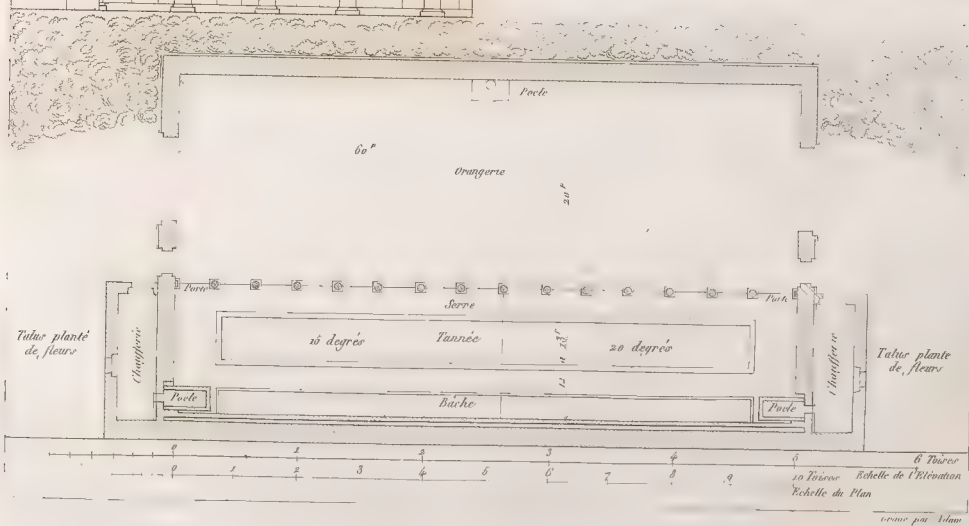 Poele
60 P
Orangerie
20 P
Porte
Porte
Serre
Talus planté
de fleurs
Chaufferie
10 degrés
Tannée
20 degrés
Chaufferie
Talus planté
de fleurs
12
Poele
Bâche
Poele
0 1 2 3 4 5 6 Toises
0 1 2 3 4 5 6 7 8 9 10 Toises
Echelle de l'Elévation
Echelle du Plan
Gravé par Adam